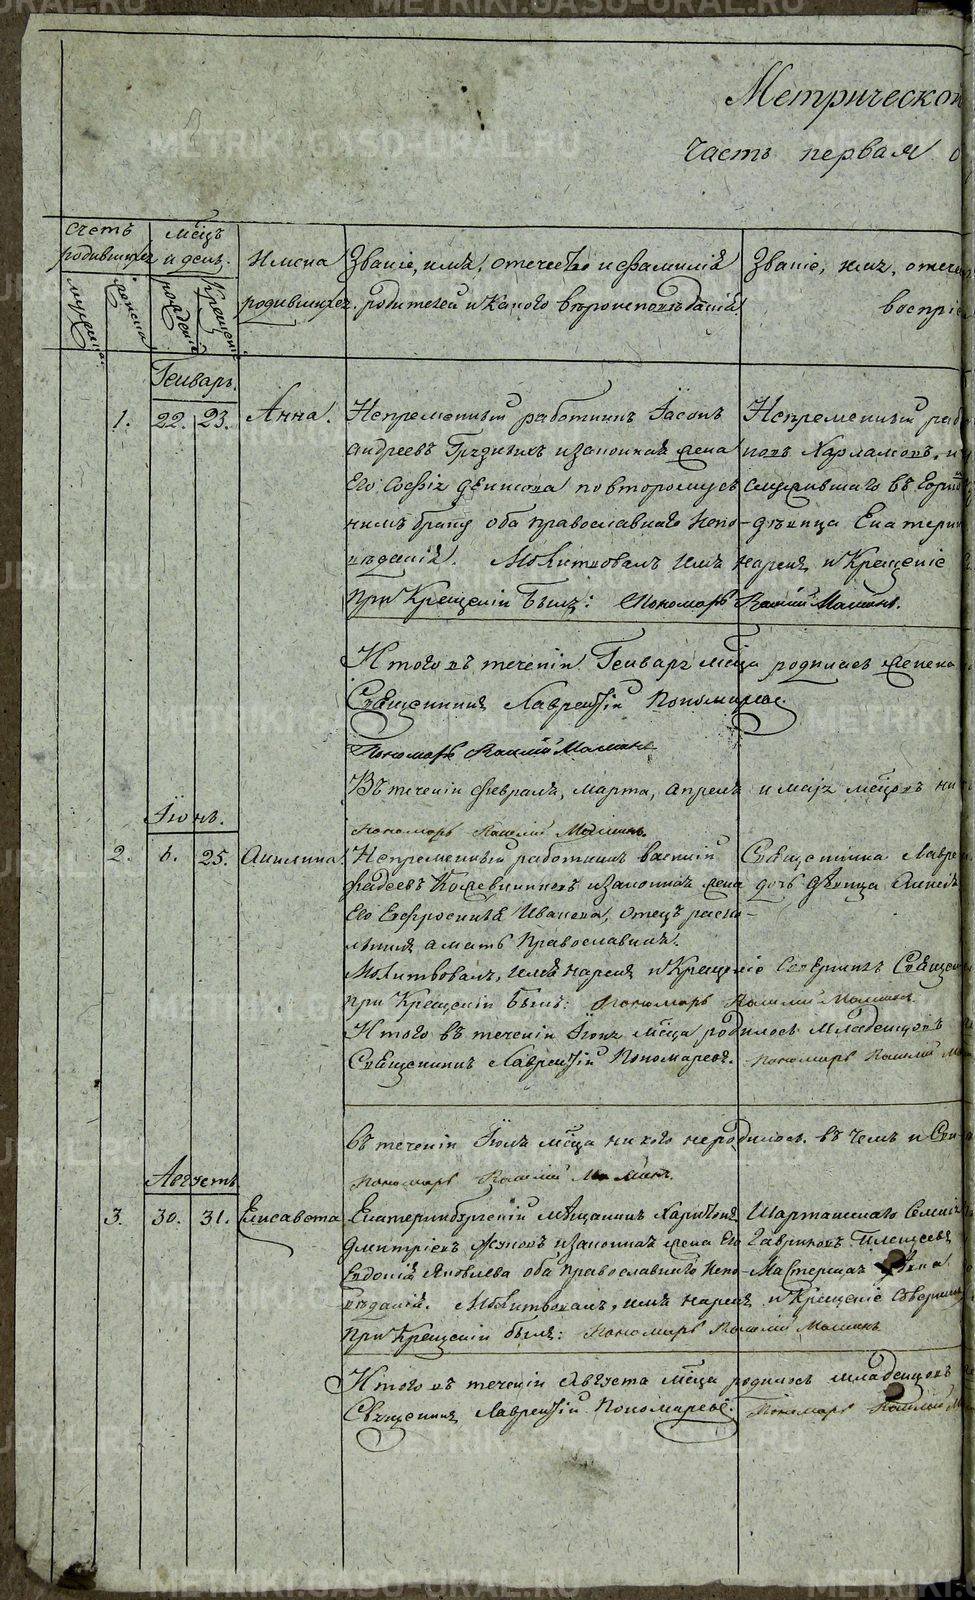 Метрической
Часть первая о
Счетъ родившихся
мѣсцъ и день.
Имена родившихся.
Званіе, имя, отечество и фамилія
родителей и какого вѣроисповѣданія.
Званіе, имя, отече
воспрі
мужеска
женска
рожденія
крещенія
Генварь.
1. 22. 23. Анна.
Непременный работникъ Іасонъ
Андреевъ и законная жена
Его Софія Денисова по второму
нимъ браку оба православнаго испо-
вѣданія. Молитвовалъ имя нарекъ и Крещеніе
При Крещеніи былъ: Пономарь Василій Маминъ.
Непременный рабо
повъ Харламовъ, и
служившаго въ Горно
дѣвица Екатерин
Итого въ теченіи Генваря мѣсца родилась женска
Священникъ Лаврентій Пономаревъ.
Пономарь Василій Маминъ
Въ теченіи февраля, марта, апреля и маія месцовъ ни
Пономарь Василій Маминъ.
Іюнь.
2. 6. 25. Акилина.
Непременный работникъ Василій
Фадеевъ Кожевниковъ и законная жена
Его Евфросинія Иванова, отецъ раско-
льникъ а мать Православная.
Молитвовалъ, имя нарекъ и Крещеніе Совершилъ Священ
При Крещеніи былъ: Пономарь Василій Маминъ.
Священника Лавре
дочь дѣвица
Итого въ теченіи Іюня мѣсца родилось младенцовъ
Священникъ Лаврентій Пономаревъ. Пономарь Василій Ма
Въ теченіи Іюля мѣсца никого не родилось. въ чемъ и Сви
Пономарь Василій Маминъ.
Августъ
3. 30. 31. Елисавета
Екатеринбургскій мѣщанинъ Харитонъ
Дмитріевъ Жуковъ и законная жена Его
Евдокія Яковлева оба православнаго испо-
вѣданія. Молитвовалъ, имя нарекъ и Крещеніе Соверши
При Крещеніи былъ: Пономарь Василій Маминъ
Шарташскаго Селенія
Гавриловъ Плещеевъ
Мастерица Анна
Итого въ теченіи Августа мѣсца родилось младенцовъ
Священникъ Лаврентій Пономаревъ. Пономарь Василій М
METRIKI.GASO-URAL.RU